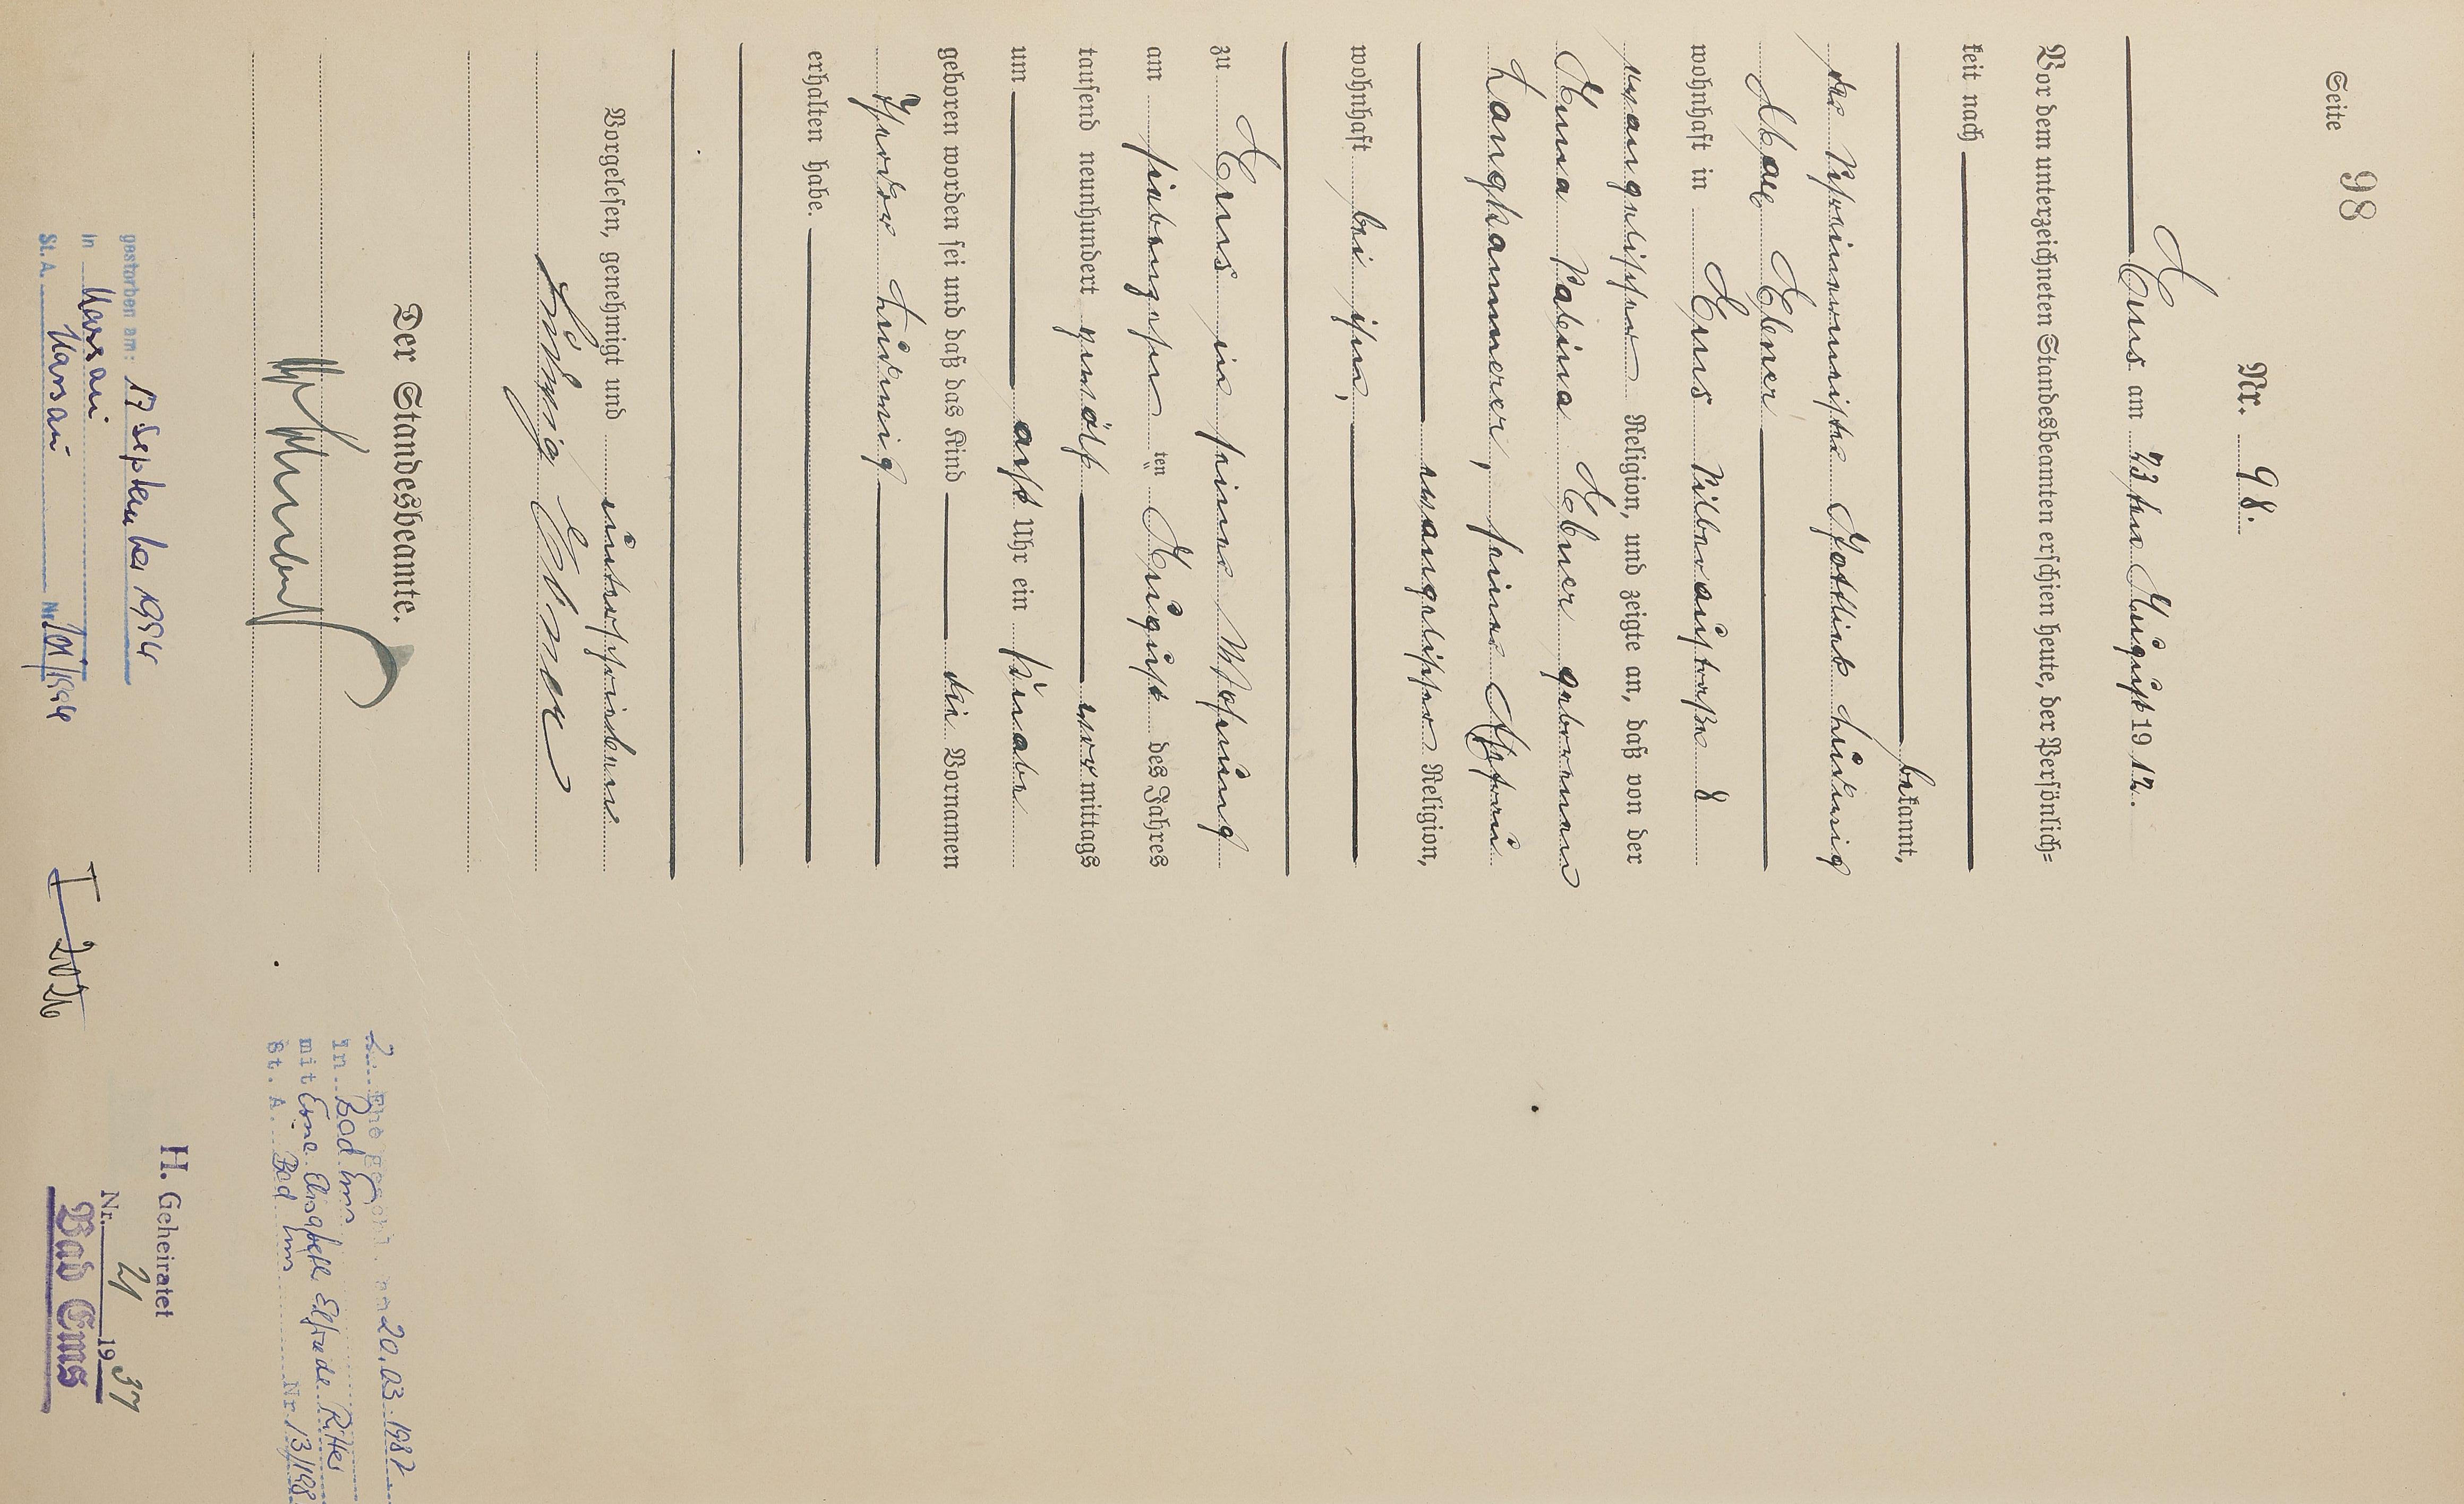 Seite 98
Nr. 98.
Ems am 23ten August 1912.
Vor dem unterzeichneten Standesbeamten erschien heute, der Persönlich=
keit nach
bekannt,
der Schreinermeister Gottlieb Ludwig
Ebner
wohnhaft in Ems Silberaustraße 8
evangelischer Religion, und zeigte an, daß von der
Anna Sabina Ebner geborenen
Langhammerer, seiner Ehefrau
evangelischer Religion,
wohnhaft bei ihm,
zu Ems in seiner Wohnung
am siebenzehnten August des Jahres
tausend neunhundert zwölf vormittags
um acht Uhr ein Knabe
geboren worden sei und daß das Kind die Vornamen
Ludwig
erhalten habe.
Vorgelesen, genehmigt und unterschrieben
Ludwig Ebner
Der Standesbeamte.
gestorben am: 17 September 1994
in Nassau
St. A. Nassau Nr. 101/1994
2. Ehe geschl. am 20.03.1987
in Bad Ems
mit Erne Elisabeth Elfriede Ritter
St. A. Bad Ems Nr. 13/198
H. Geheiratet
Nr. 21 1937
Bad Ems